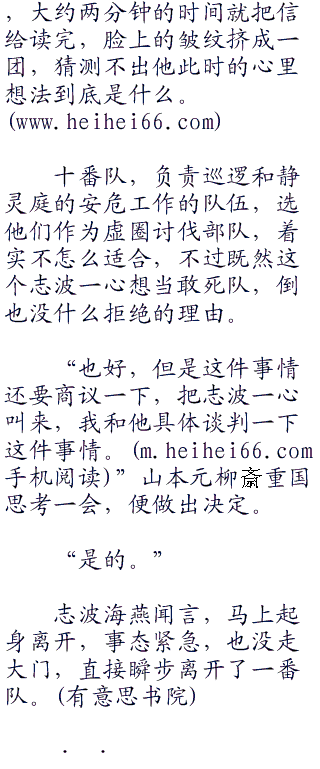 ，大约两分钟的时间就把信
给读完，脸上的皱纹挤成一
团，猜测不出他此时的心里
想法到底是什么。
(www.heihei66.com)
十番队，负责巡逻和静
灵庭的安危工作的队伍，选
他们作为虚圈讨伐部队，着
实不怎么适合，不过既然这
个志波一心想当敢死队，倒
也没什么拒绝的理由。
“也好，但是这件事情
还要商议一下，把志波一心
叫来，我和他具体谈判一下
这件事情。(m.heihei66.com
手机阅读)”山本元柳斎重国
思考一会，便做出决定。
“是的。”
志波海燕闻言，马上起
身离开，事态紧急，也没走
大门，直接瞬步离开了一番
队。(有意思书院)
．．